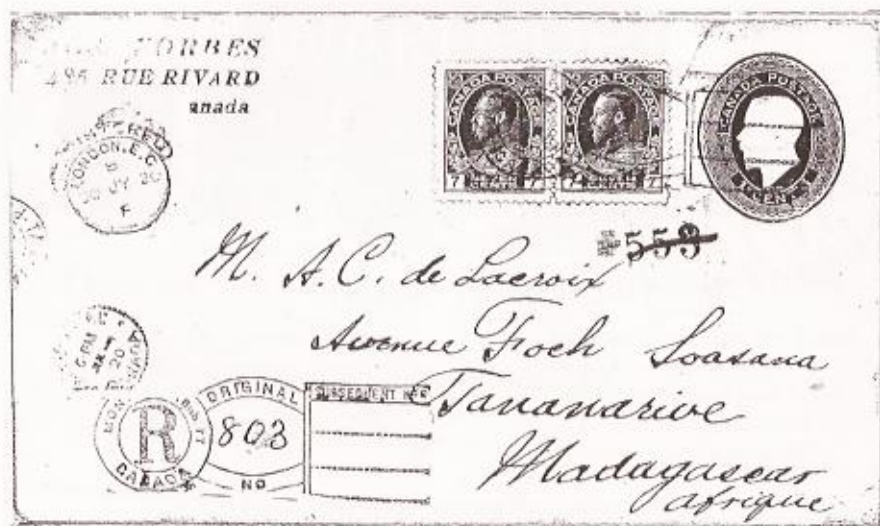 FORBES
RUE RIVARD
anada
CANADA POSTAGE
7 CENTS 7
CANADA POSTAGE
7 CENTS 7
CANADA POSTAGE
LONDON.E.C.
JY 20
F
553
M. A. C. de Lacroix
Avenue Foch Soasana
Tananarive
Madagascar
afrique
6 PM
20
R
CANADA
ORIGINAL
803
NO
SUBSEQUENT